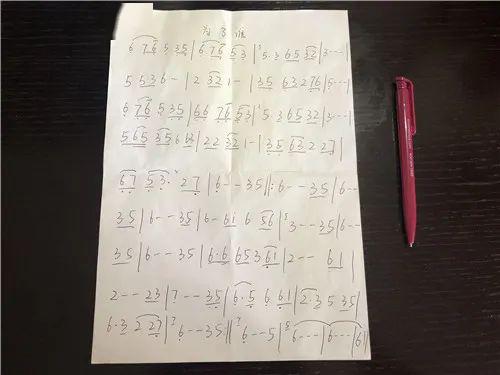 为了谁
6 7 6 5 3 5 | 6 7 6 5 3 | 5 · 3 6 5 3 2 | 3 - - - |
5 5 3 6 - | 2 3 2 1 - | 3 5 6 3 2 7 6 | 5 - - - |
6 7 6 5 3 5 | 6 6 7 6 5 3 | 5 · 3 6 5 3 2 | 3 - - - |
5 6 5 3 5 6 | 2 2 3 2 1 - | 3 5 6 3 2 2 7 |
6 7 5 3 · 2 7 | 6 - - 3 5 ||: 6 - - 3 5 | 6 - -
3 5 | 6 - - 3 5 | 6 - 6 1 6 5 6 | 3 - - 3 5 | 6 - -
3 5 | 6 - - 3 5 | 6 · 6 6 5 3 6 1 | 2 - - 6 1 |
2 - - 2 3 | 7 - - 3 5 | 6 · 5 6 6 1 | 2 · 3 5 3 5 |
6 · 3 2 2 7 | 6 - - 3 5 :|| 6 - - 5 | 6 - - - | 6 - - - | 6 ||